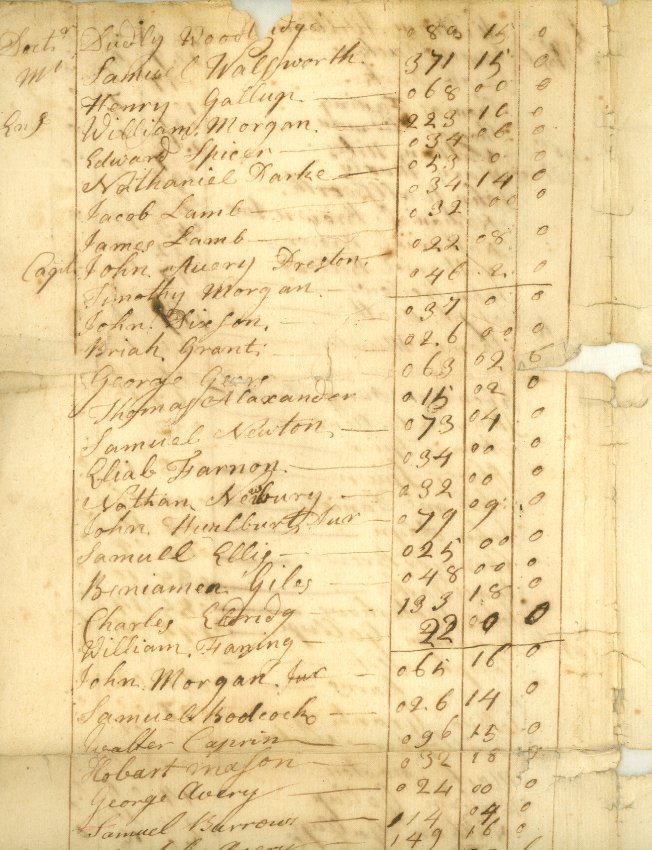 Doctr Dudly Woodbridge 089 15 0
Mr Samuel Walsworth 371 15 0
Henry Gallup 068 00 0
Ens William Morgan 223 16 0
Edward Spicer 034 06 0
Nathaniel Darke 053 0 0
Jacob Lamb 034 14 0
James Lamb 032 00 0
Capt John Avery Preston 022 08 0
Timothy Morgan 046 2 0
John Dixson 037 0 0
Briah Grant 026 00 0
George Geers 063 02 6
Thomas Alaxander 015 02 0
Samuel Newton 073 04 0
Eliab Farnon 034 00 0
Nathan Newbury 032 00 0
John Hurlburt Jur 079 09 0
Samuell Ellis 025 00 0
Beniamen Giles 048 00 0
Charles Eldridg 193 18 0
William Faning 22 0 0
John Morgan Jur 065 16 0
Samuel Bodcock 026 14 0
Walter Caprin 096 15 0
Hobart Mason 032 18 0
George Avery 024 00 0
Samuel Burrows 114 04 0
149 16 0